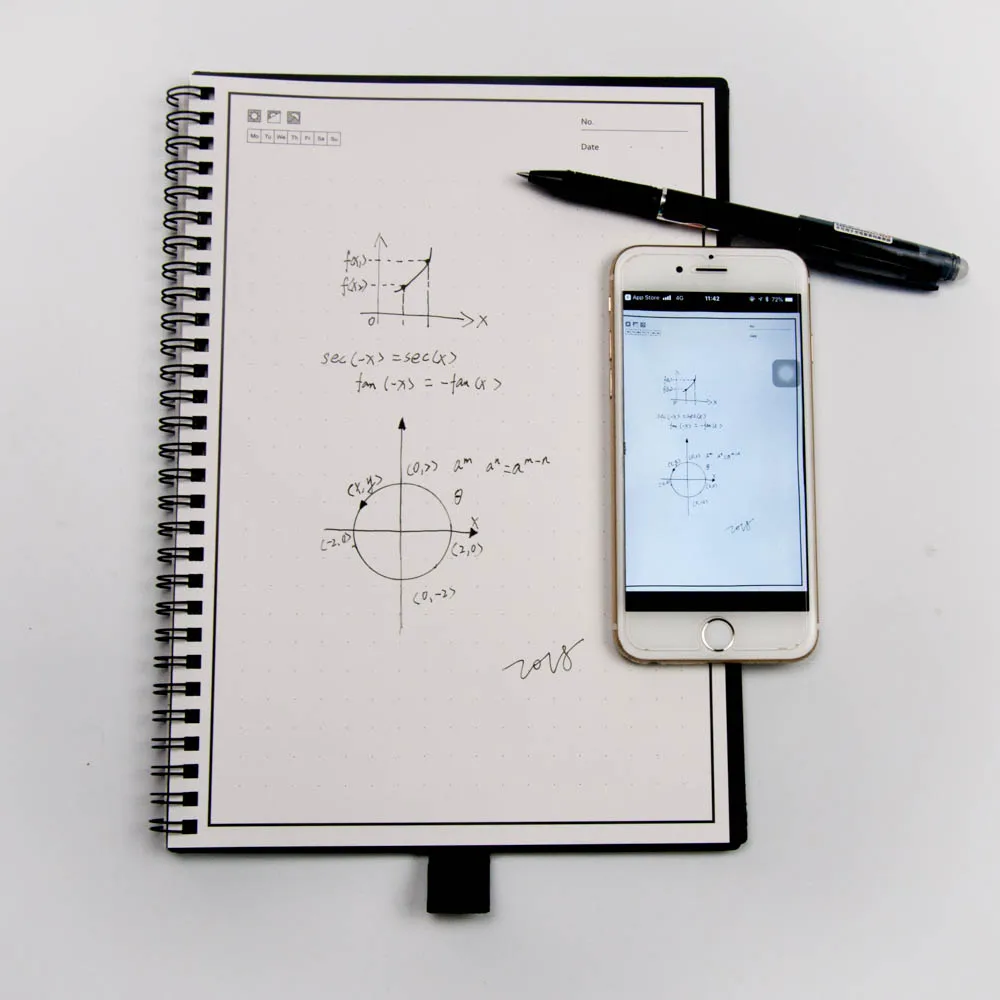 No.
Mo Tu We Th Fr Sa Su
Date
f(x₁)
f(x₂)
0 X
sec(-x) = sec(x)
tan(-x) = -tan(x)
(0,2) aᵐ. aⁿ = aᵐ⁻ⁿ
(x,y)
θ
X
(-2,0) (2,0)
(0,-2)
2018
App Store 4G 11:42 72%